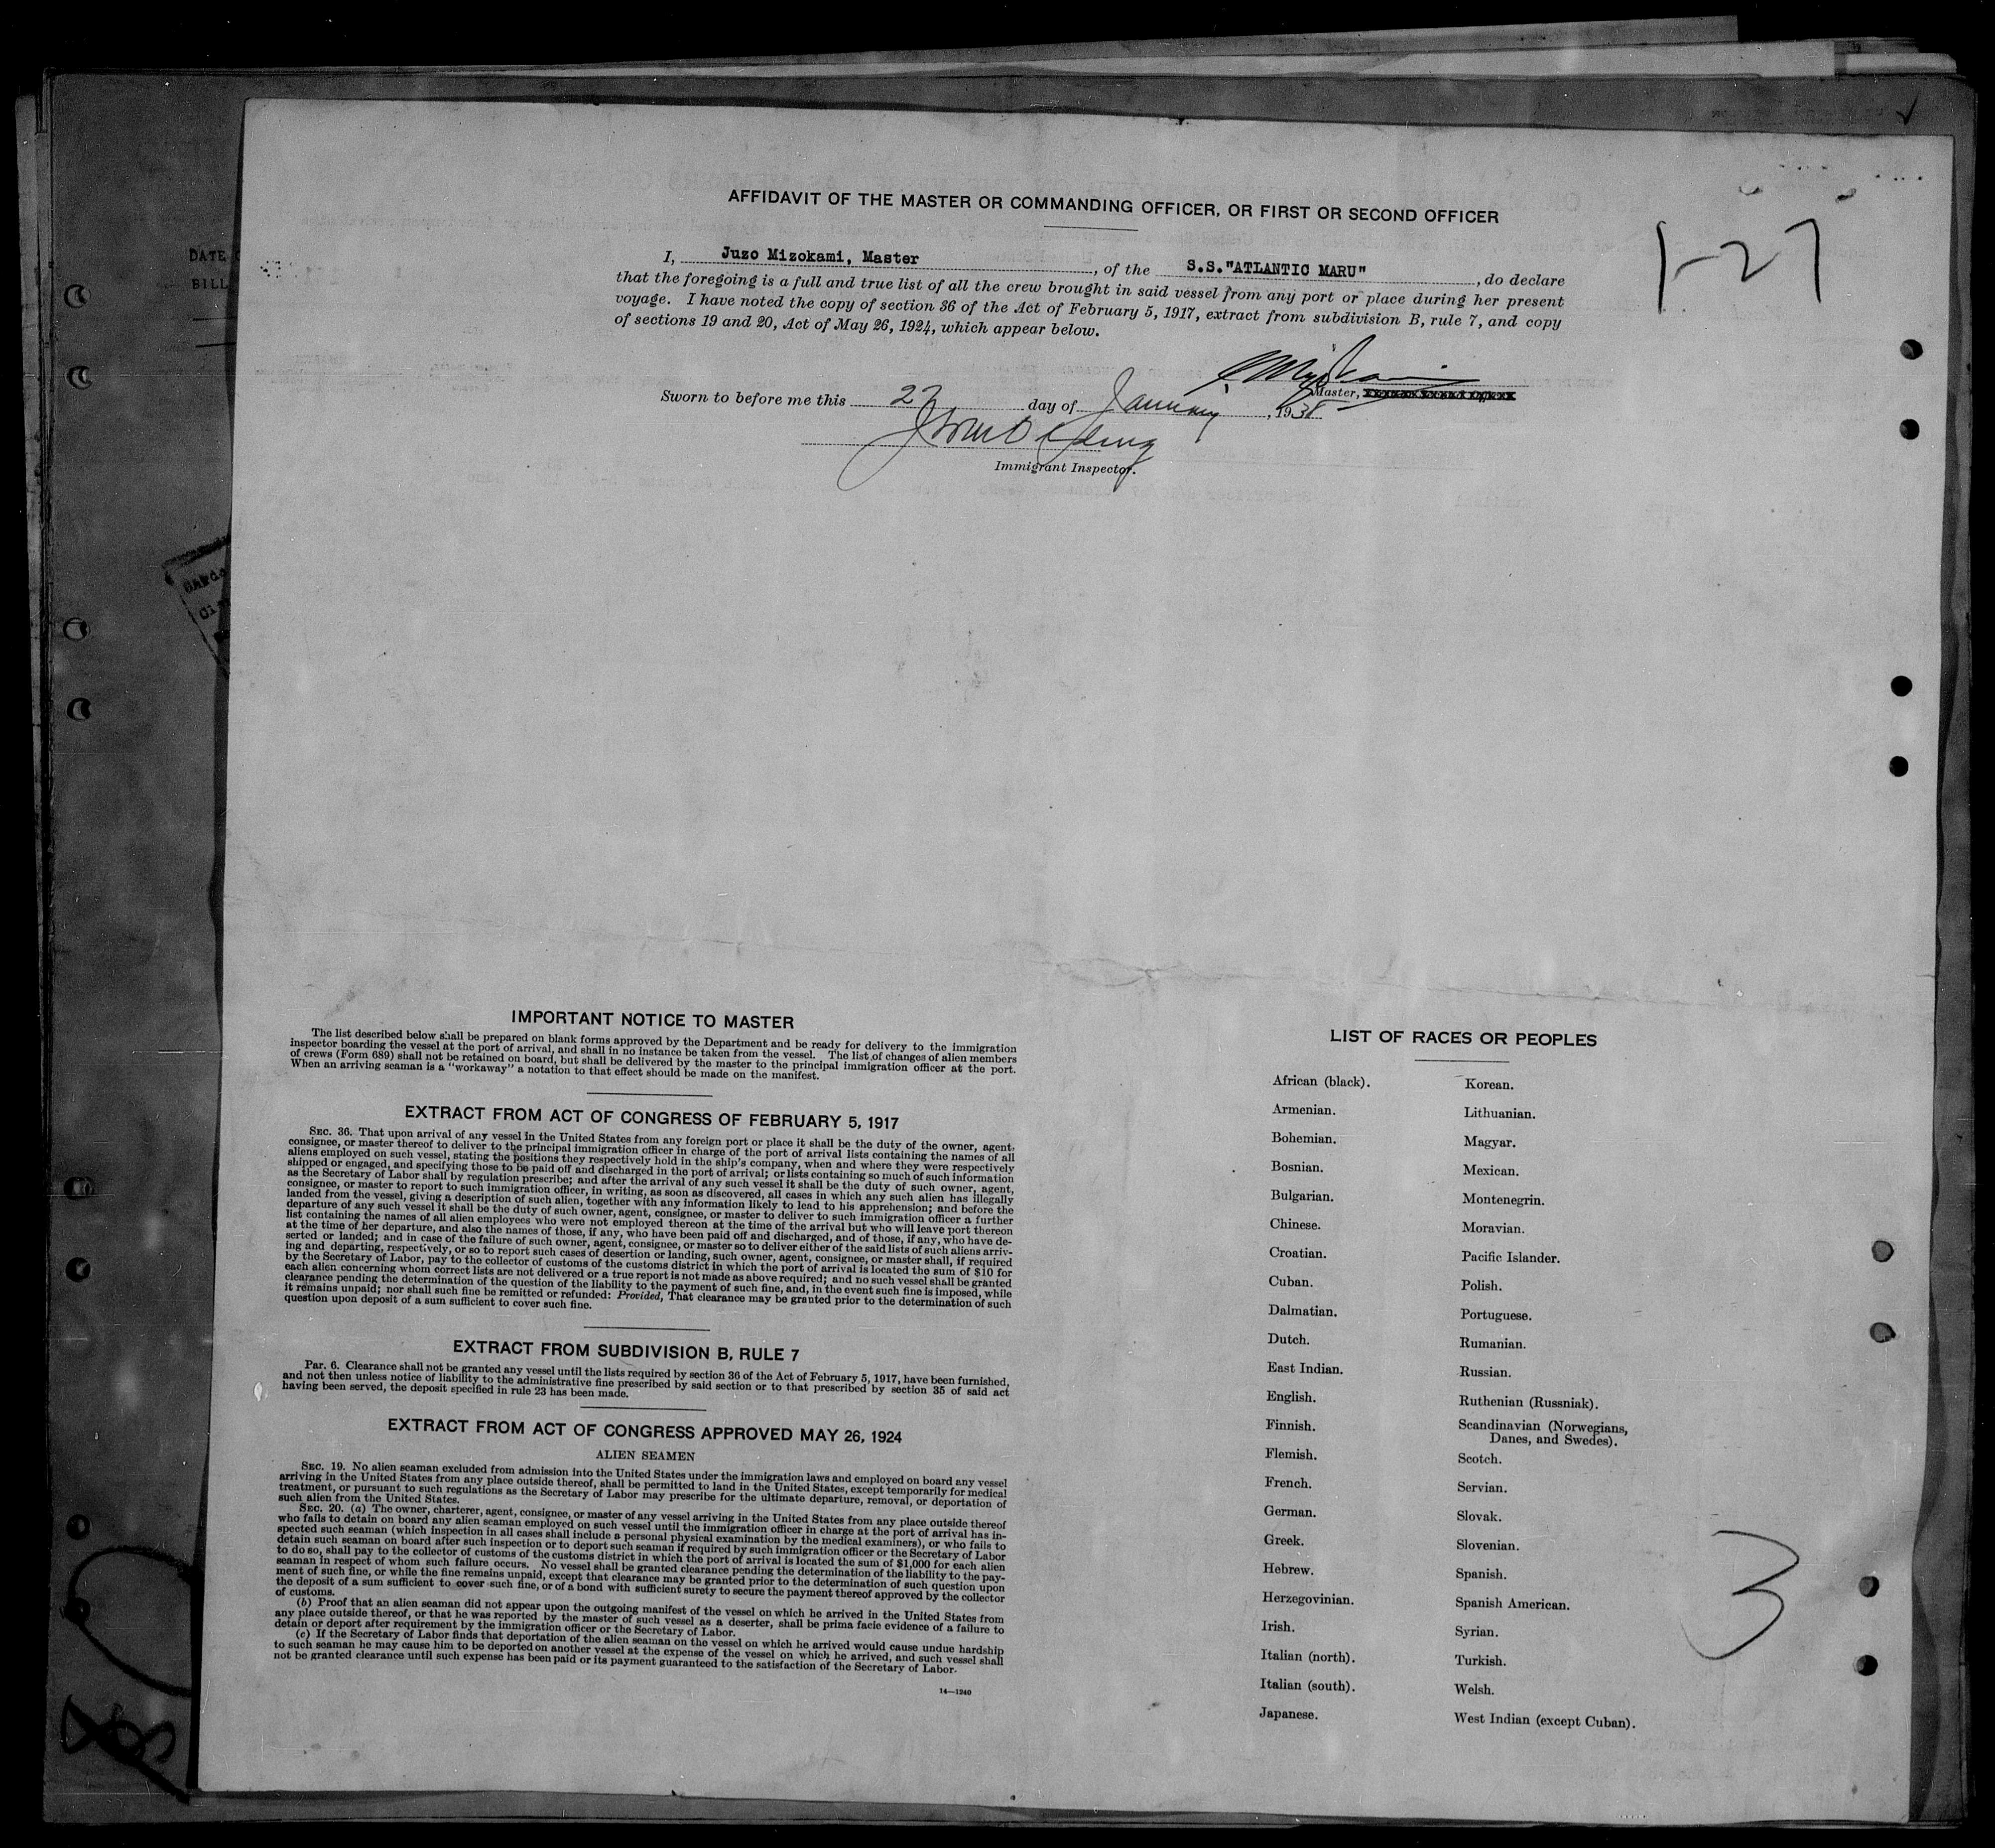 DATE
BILL
AFFIDAVIT OF THE MASTER OR COMMANDING OFFICER, OR FIRST OR SECOND OFFICER
1-27
I, Juzo Mizokami, Master, of the S.S."ATLANTIC MARU", do declare
that the foregoing is a full and true list of all the crew brought in said vessel from any port or place during her present
voyage. I have noted the copy of section 36 of the Act of February 5, 1917, extract from subdivision B, rule 7, and copy
of sections 19 and 20, Act of May 26, 1924, which appear below.
Master,
Sworn to before me this 27 day of January, 1938
Immigrant Inspector.
IMPORTANT NOTICE TO MASTER
The list described below shall be prepared on blank forms approved by the Department and be ready for delivery to the immigration
inspector boarding the vessel at the port of arrival, and shall in no instance be taken from the vessel. The list of changes of alien members
of crews (Form 689) shall not be retained on board, but shall be delivered by the master to the principal immigration officer at the port.
When an arriving seaman is a "workaway" a notation to that effect should be made on the manifest.
EXTRACT FROM ACT OF CONGRESS OF FEBRUARY 5, 1917
SEC. 36. That upon arrival of any vessel in the United States from any foreign port or place it shall be the duty of the owner, agent,
consignee, or master thereof to deliver to the principal immigration officer in charge of the port of arrival lists containing the names of all
aliens employed on such vessel, stating the positions they respectively hold in the ship's company, when and where they were respectively
shipped or engaged, and specifying those to be paid off and discharged in the port of arrival; or lists containing so much of such information
as the Secretary of Labor shall by regulation prescribe; and after the arrival of any such vessel it shall be the duty of such owner, agent,
consignee, or master to report to such immigration officer, in writing, as soon as discovered, all cases in which any such alien has illegally
landed from the vessel, giving a description of such alien, together with any information likely to lead to his apprehension; and before the
departure of any such vessel it shall be the duty of such owner, agent, consignee, or master to deliver to such immigration officer a further
list containing the names of all alien employees who were not employed thereon at the time of the arrival but who will leave port thereon
at the time of her departure, and also the names of those, if any, who have been paid off and discharged, and of those, if any, who have de-
serted or landed; and in case of the failure of such owner, agent, consignee, or master so to deliver either of the said lists of such aliens arriv-
ing and departing, respectively, or so to report such cases of desertion or landing, such owner, agent, consignee, or master shall, if required
by the Secretary of Labor, pay to the collector of customs of the customs district in which the port of arrival is located the sum of $10 for
each alien concerning whom correct lists are not delivered or a true report is not made as above required; and no such vessel shall be granted
clearance pending the determination of the question of the liability to the payment of such fine, and, in the event such fine is imposed, while
it remains unpaid; nor shall such fine be remitted or refunded: Provided, That clearance may be granted prior to the determination of such
question upon deposit of a sum sufficient to cover such fine.
EXTRACT FROM SUBDIVISION B, RULE 7
Par. 6. Clearance shall not be granted any vessel until the lists required by section 36 of the Act of February 5, 1917, have been furnished,
and not then unless notice of liability to the administrative fine prescribed by said section or to that prescribed by section 35 of said act
having been served, the deposit specified in rule 23 has been made.
EXTRACT FROM ACT OF CONGRESS APPROVED MAY 26, 1924
ALIEN SEAMEN
SEC. 19. No alien seaman excluded from admission into the United States under the immigration laws and employed on board any vessel
arriving in the United States from any place outside thereof, shall be permitted to land in the United States, except temporarily for medical
treatment, or pursuant to such regulations as the Secretary of Labor may prescribe for the ultimate departure, removal, or deportation of
such alien from the United States.
SEC. 20. (a) The owner, charterer, agent, consignee, or master of any vessel arriving in the United States from any place outside thereof
who fails to detain on board any alien seaman employed on such vessel until the immigration officer in charge at the port of arrival has in-
spected such seaman (which inspection in all cases shall include a personal physical examination by the medical examiners), or who fails to
detain such seaman on board after such inspection or to deport such seaman if required by such immigration officer or the Secretary of Labor
to do so, shall pay to the collector of customs of the customs district in which the port of arrival is located the sum of $1,000 for each alien
seaman in respect of whom such failure occurs. No vessel shall be granted clearance pending the determination of the liability to the pay-
ment of such fine, or while the fine remains unpaid, except that clearance may be granted prior to the determination of such question upon
the deposit of a sum sufficient to cover such fine, or of a bond with sufficient surety to secure the payment thereof approved by the collector
of customs.
(b) Proof that an alien seaman did not appear upon the outgoing manifest of the vessel on which he arrived in the United States from
any place outside thereof, or that he was reported by the master of such vessel as a deserter, shall be prima facie evidence of a failure to
detain or deport after requirement by the immigration officer or the Secretary of Labor.
(c) If the Secretary of Labor finds that deportation of the alien seaman on the vessel on which he arrived would cause undue hardship
to such seaman he may cause him to be deported on another vessel at the expense of the vessel on which he arrived, and such vessel shall
not be granted clearance until such expense has been paid or its payment guaranteed to the satisfaction of the Secretary of Labor.
14—1240
LIST OF RACES OR PEOPLES
African (black).
Armenian.
Bohemian.
Bosnian.
Bulgarian.
Chinese.
Croatian.
Cuban.
Dalmatian.
Dutch.
East Indian.
English.
Finnish.
Flemish.
French.
German.
Greek.
Hebrew.
Herzegovinian.
Irish.
Italian (north).
Italian (south).
Japanese.
Korean.
Lithuanian.
Magyar.
Mexican.
Montenegrin.
Moravian.
Pacific Islander.
Polish.
Portuguese.
Rumanian.
Russian.
Ruthenian (Russniak).
Scandinavian (Norwegians,
Danes, and Swedes).
Scotch.
Servian.
Slovak.
Slovenian.
Spanish.
Spanish American.
Syrian.
Turkish.
Welsh.
West Indian (except Cuban).
3